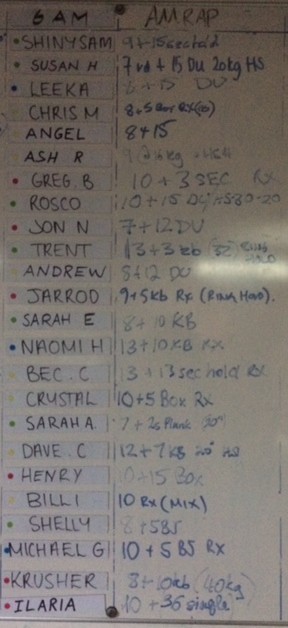 6AM AMRAP
SHINYSAM 9+15sec hold
SUSAN H 7rd + 15 DU 20kg HS
LEEKA 6+15 DU
CHRIS M 8+5 Rx
ANGEL 8+15
ASH R
GREG.B 10+3 SEC Rx
ROSCO 10+15 DU
JON N 7+12DU
TRENT 13+3kb (32)
ANDREW 8+12 DU
JARROD 9+5kb Rx (RING HOLD).
SARAH E 8+10 KB
NAOMI H 13+10KB RX
BEC.C 13+13sec hold Rx
CRYSTAL 10+5 Box Rx
SARAH A. 7+2s Plank 20"
DAVE.C 12+7KB 20"
HENRY 10+15 Box
BILLI 10 Rx (MIX)
SHELLY 8+5BJ
MICHAEL G 10+5 BJ Rx
KRUSHER 8+10kb (40kg)
ILARIA 10+36 single